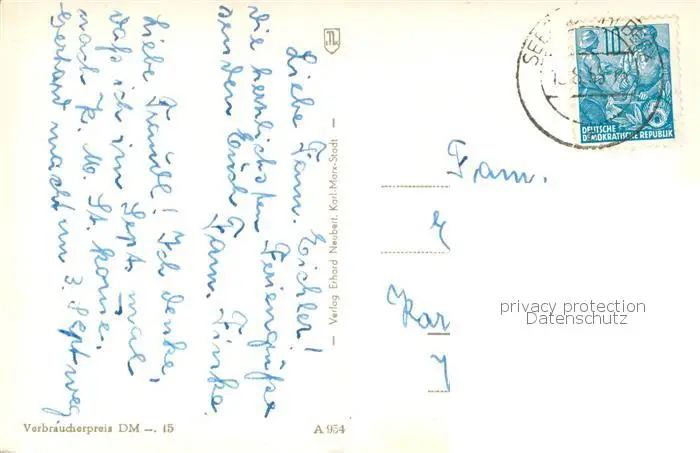 Liebe Fam. Eichler!
Die herzlichsten Feriengrüße
senden Euch Fam. Finke.
Liebe Traudl! Ich denke,
daß ich im Sept. mal
nach K. M. St. komme.
Gerhard macht um 3. Sept weg.
— Verlag Erhard Neubert, Karl-Marx-Stadt —
Verbraucherpreis DM —. 15
A 954
SEE
10
DEUTSCHE
DEMOKRATISCHE REPUBLIK
Fam.
E
Kar
privacy protection
Datenschutz